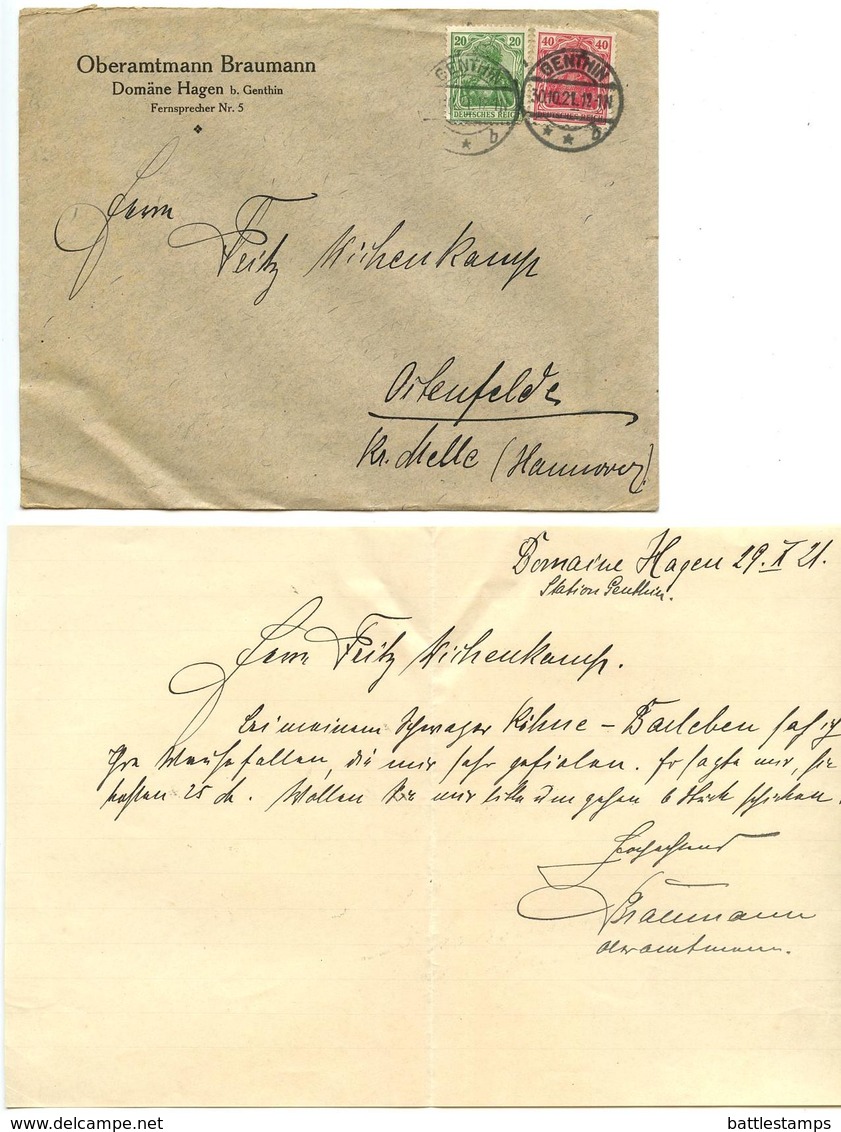 Oberamtmann Braumann
Domäne Hagen b. Genthin
Fernsprecher Nr. 5
20 20
DEUTSCHES REICH
40 40
DEUTSCHES REICH
GENTHIN
b
GENTHIN
30.10.21. 12-1N
b
Herrn
Fritz Wichenkamp
Ostenfelde
Kr. Melle (Hannover).
Domaine Hagen 29. X 21.
Station Genthin.
Herrn Fritz Wichenkamp.
Bei meinem Schwager Kühne – Barleben sah ich
Ihre Mausefallen, die mir sehr gefielen. Er sagte mir, sie
kosten 25 M. Wollen Sie mir bitte umgehen 6 Stück schicken.
Hochachtend
Braumann
Oberamtmann.
www.delcampe.net
battlestamps